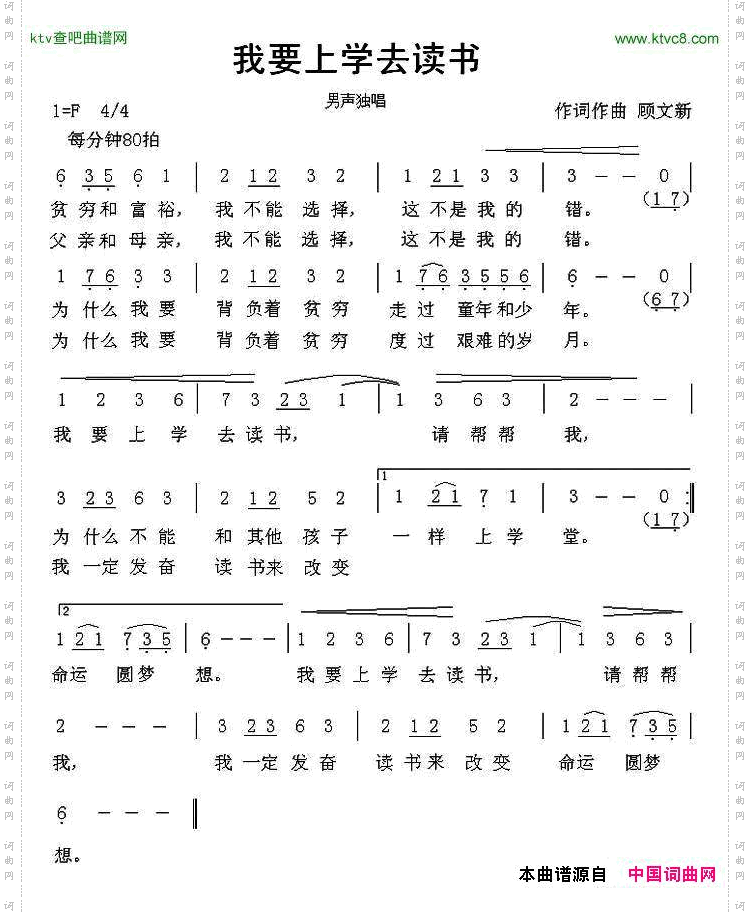 ktv查吧曲谱网
www.ktvc8.com
我要上学去读书
男声独唱
1=F 4/4
作词作曲 顾文新
每分钟80拍
6 3 5 6 1 | 2 1 2 3 2 | 1 2 1 3 3 | 3 - - 0 |
(1 7)
贫穷和富裕, 我不能选择, 这不是我的错。
父亲和母亲, 我不能选择, 这不是我的错。
1 7 6 3 3 | 2 1 2 3 2 | 1 7 6 3 5 5 6 | 6 - - 0 |
(6 7)
为什么我要 背负着贫穷 走过 童年和少年。
为什么我要 背负着贫穷 度过 艰难的岁月。
1 2 3 6 | 7 3 2 3 1 | 1 3 6 3 | 2 - - - |
我要上学去读书, 请帮帮我,
1
3 2 3 6 3 | 2 1 2 5 2 | 1 2 1 7 1 | 3 - - 0 :||
(1 7)
为什么不能 和其他孩子 一样上学堂。
我一定发奋 读书来改变
2
1 2 1 7 3 5 | 6 - - - | 1 2 3 6 | 7 3 2 3 1 | 1 3 6 3 |
命运 圆梦想。 我要上学去读书, 请帮帮
2 - - - | 3 2 3 6 3 | 2 1 2 5 2 | 1 2 1 7 3 5 |
我, 我一定发奋 读书来改变 命运 圆梦
6 - - - ||
想。
本曲谱源自 中国词曲网